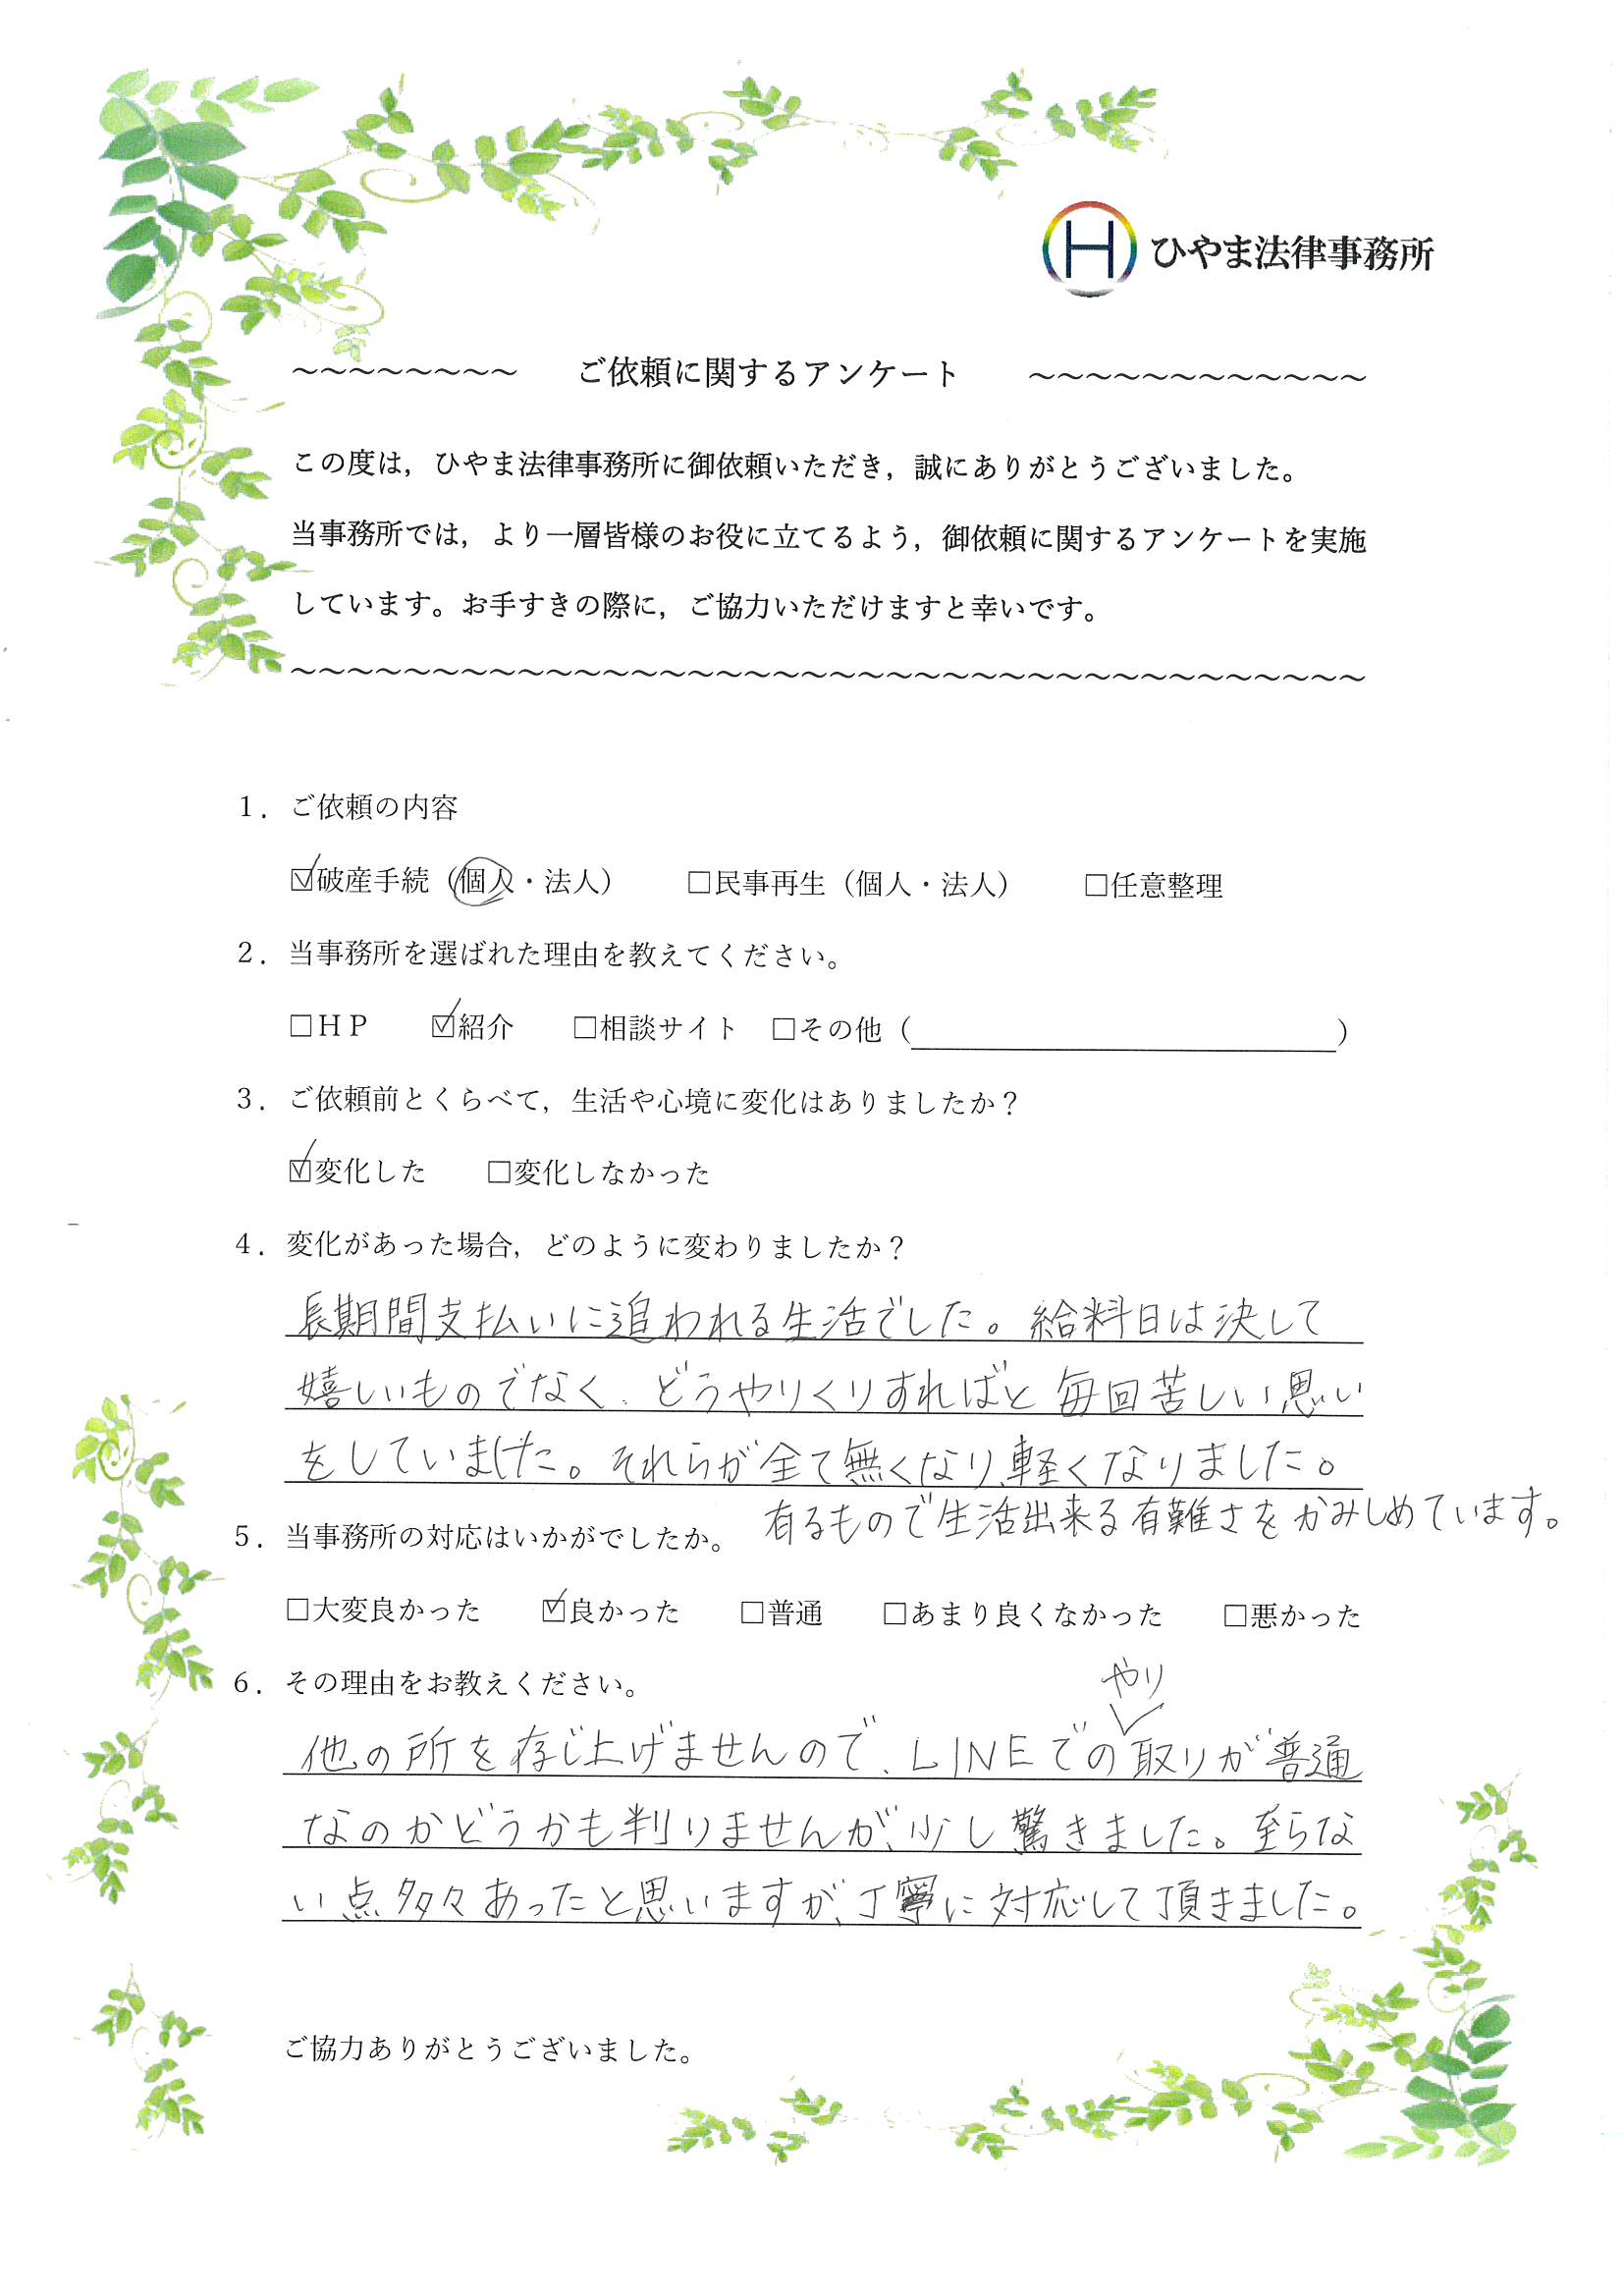 H ひやま法律事務所
～～～～～～～～ ご依頼に関するアンケート ～～～～～～～～～～～～
この度は，ひやま法律事務所に御依頼いただき，誠にありがとうございました。
当事務所では，より一層皆様のお役に立てるよう，御依頼に関するアンケートを実施
しています。お手すきの際に，ご協力いただけますと幸いです。
～～～～～～～～～～～～～～～～～～～～～～～～～～～～～～～～～～～～～～
１．ご依頼の内容
☑破産手続（個人・法人） □民事再生（個人・法人） □任意整理
２．当事務所を選ばれた理由を教えてください。
□ＨＰ ☑紹介 □相談サイト □その他（　　　　　　　　）
３．ご依頼前とくらべて，生活や心境に変化はありましたか？
☑変化した □変化しなかった
４．変化があった場合，どのように変わりましたか？
長期間支払いに追われる生活でした。給料日は決して
嬉しいものでなく、どうやりくりすればと毎回苦しい思い
をしていました。それらが全て無くなり、軽くなりました。
有るもので生活出来る有難さをかみしめています。
５．当事務所の対応はいかがでしたか。
□大変良かった ☑良かった □普通 □あまり良くなかった □悪かった
６．その理由をお教えください。
やり
他の所を存じ上げませんので、LINEでの取りが普通
なのかどうかも判りませんが、少し驚きました。至らな
い点多々あったと思いますが、丁寧に対応して頂きました。
ご協力ありがとうございました。